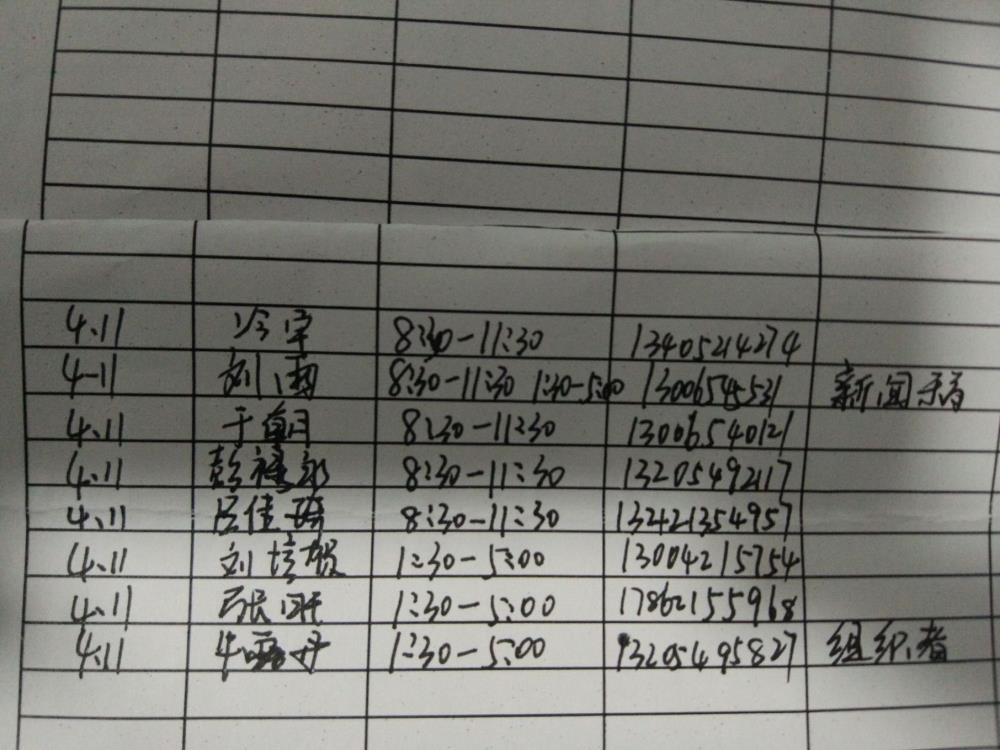 4.11 冷宇 8:30-11:30 13405214274
4-11 刘雨 8:30-11:30 1:30-5:00 13006545531 新闻稿
4.11 于 8:30-11:30 13006540121
4.11 彭 8:30-11:30 13205492117
4.11 佳 8:30-11:30 132421354957
4.11 刘培 1:30-5:00 13004215754
4.11 张 1:30-5:00 17862155968
4.11 牛 1:30-5:00 13205495827 组织者